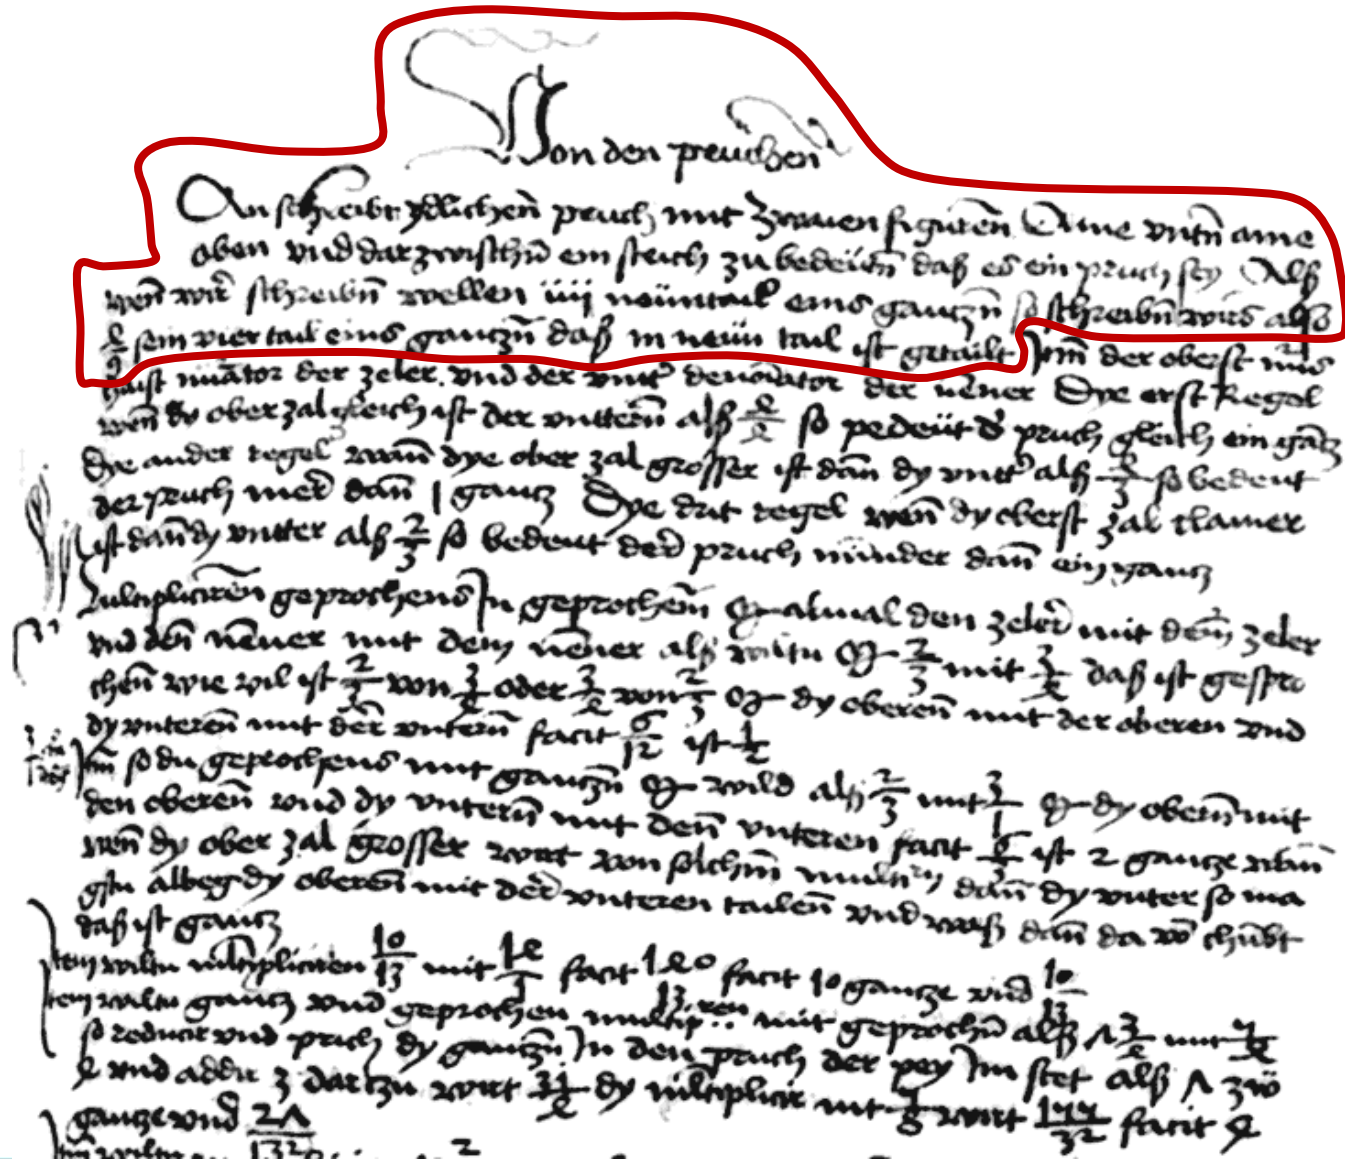 Von den pruchen
Man schreibt ydlichen pruch mit zwaien figuren Aine untn aine
oben und dar zwischn ein strich zu bedeutn daß es ein pruch sey Alß
wen wir schreibn wellen iiii neuntail eins ganczn so schreibn wirs also
4/9 sein vier tail eins ganczn daß in neun tail ist getailt Itm der oberst
haist der zeler und der denominator der nener Dye erst Regel
wen dy ober zal gleich ist der untteren alß 4/4 so pedeut der pruch gleich ein gancz
dye ander regel wann dye ober zal grosser ist dan dy untter alß so bedeut
der pruch mer dan 1 gancz Dye drit regel wen dy oberst zal clainer
ist dan dy untter alß 2/3 so bedeut der pruch minder dan ein gancz
Multipliciren geprochens In geprochem den zeler mit dem zeler
und den nener mit dem nener alß wiltu 2/3 mit 3/4 daß ist gespro
chen wie vil ist 2/3 von 3/4 oder 3/4 von 2/3 dy oberen mit der oberen und
dy unteren mit der untern facit 6/12 ist 1/2
Itm so du geprochens mit ganczn wild alß 2/3 mit 3/1 dy obern mit
den oberen und dy untern mit den unteren facit 6/3 ist 2 gancze wan
wen dy ober zal grosser wirt von solchem dan dy unter so ma
albeg dy oberen mit der unteren tailen und waß dan da
daß ist gancz
Item wiltu multipliciren 10/13 mit 14/1 facit 140/13 facit 10 gancze und 10/13
Item wiltu gancz und geprochen mit geprochn alß 7 3/4 mit
so reducir und prich dy ganczn In den pruch der pey Im stet alß 7
und addir 3 darczu wirt 31/4 dy multiplicir mit wirt facit 4
gancze und 27/32